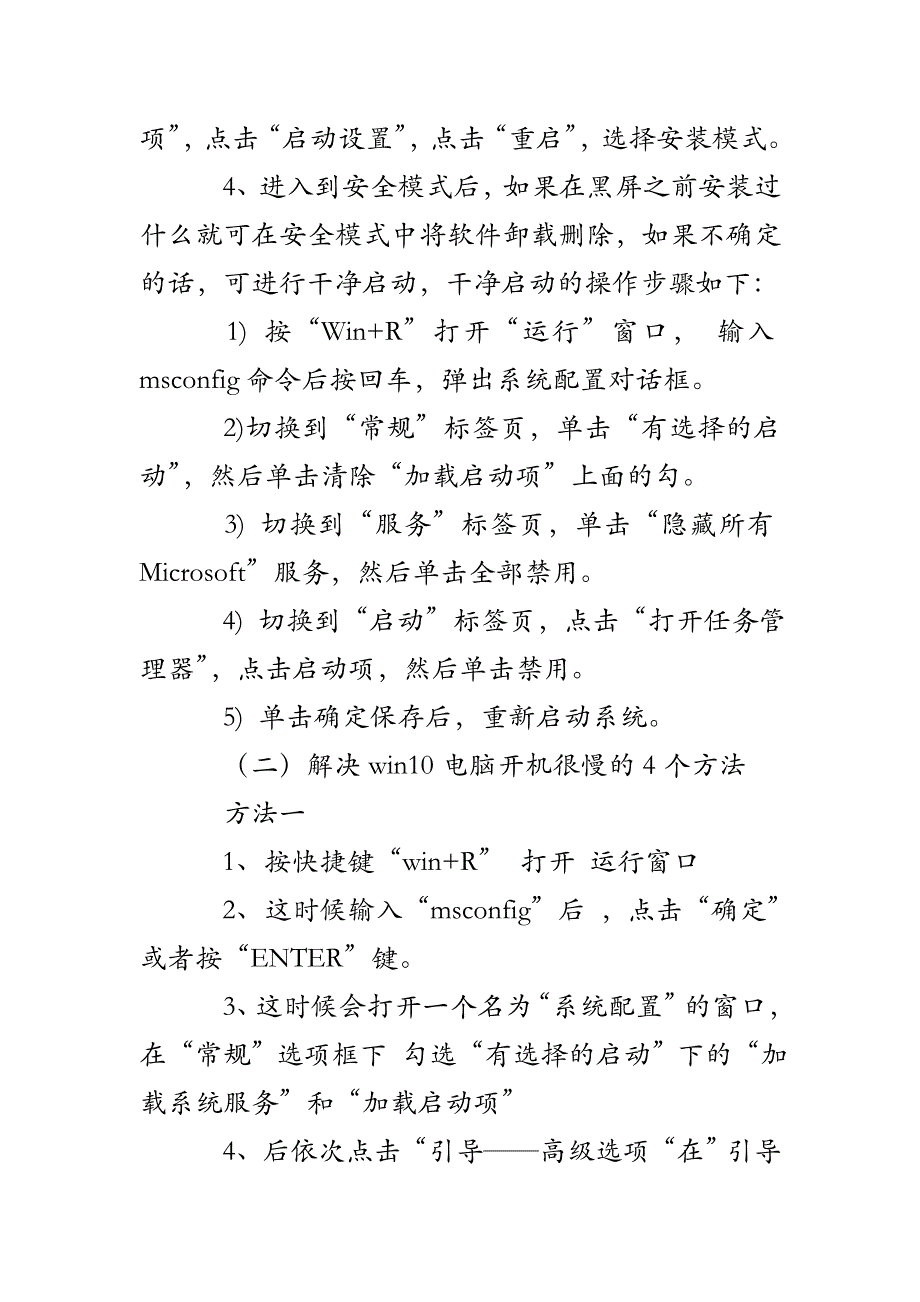 项”，点击“启动设置”，点击“重启”，选择安装模式。
4、进入到安全模式后，如果在黑屏之前安装过
什么就可在安全模式中将软件卸载删除，如果不确定
的话，可进行干净启动，干净启动的操作步骤如下：
1) 按“Win+R”打开“运行”窗口， 输入
msconfig 命令后按回车，弹出系统配置对话框。
2)切换到“常规”标签页，单击“有选择的启
动”，然后单击清除“加载启动项”上面的勾。
3) 切换到“服务”标签页，单击“隐藏所有
Microsoft”服务，然后单击全部禁用。
4) 切换到“启动”标签页，点击“打开任务管
理器”，点击启动项，然后单击禁用。
5) 单击确定保存后，重新启动系统。
（二）解决 win10 电脑开机很慢的 4 个方法
方法一
1、按快捷键“win+R” 打开 运行窗口
2、这时候输入“msconfig”后 ，点击“确定”
或者按“ENTER”键。
3、这时候会打开一个名为“系统配置”的窗口，
在“常规”选项框下 勾选“有选择的启动”下的“加
载系统服务”和“加载启动项”
4、后依次点击“引导——高级选项“在”引导